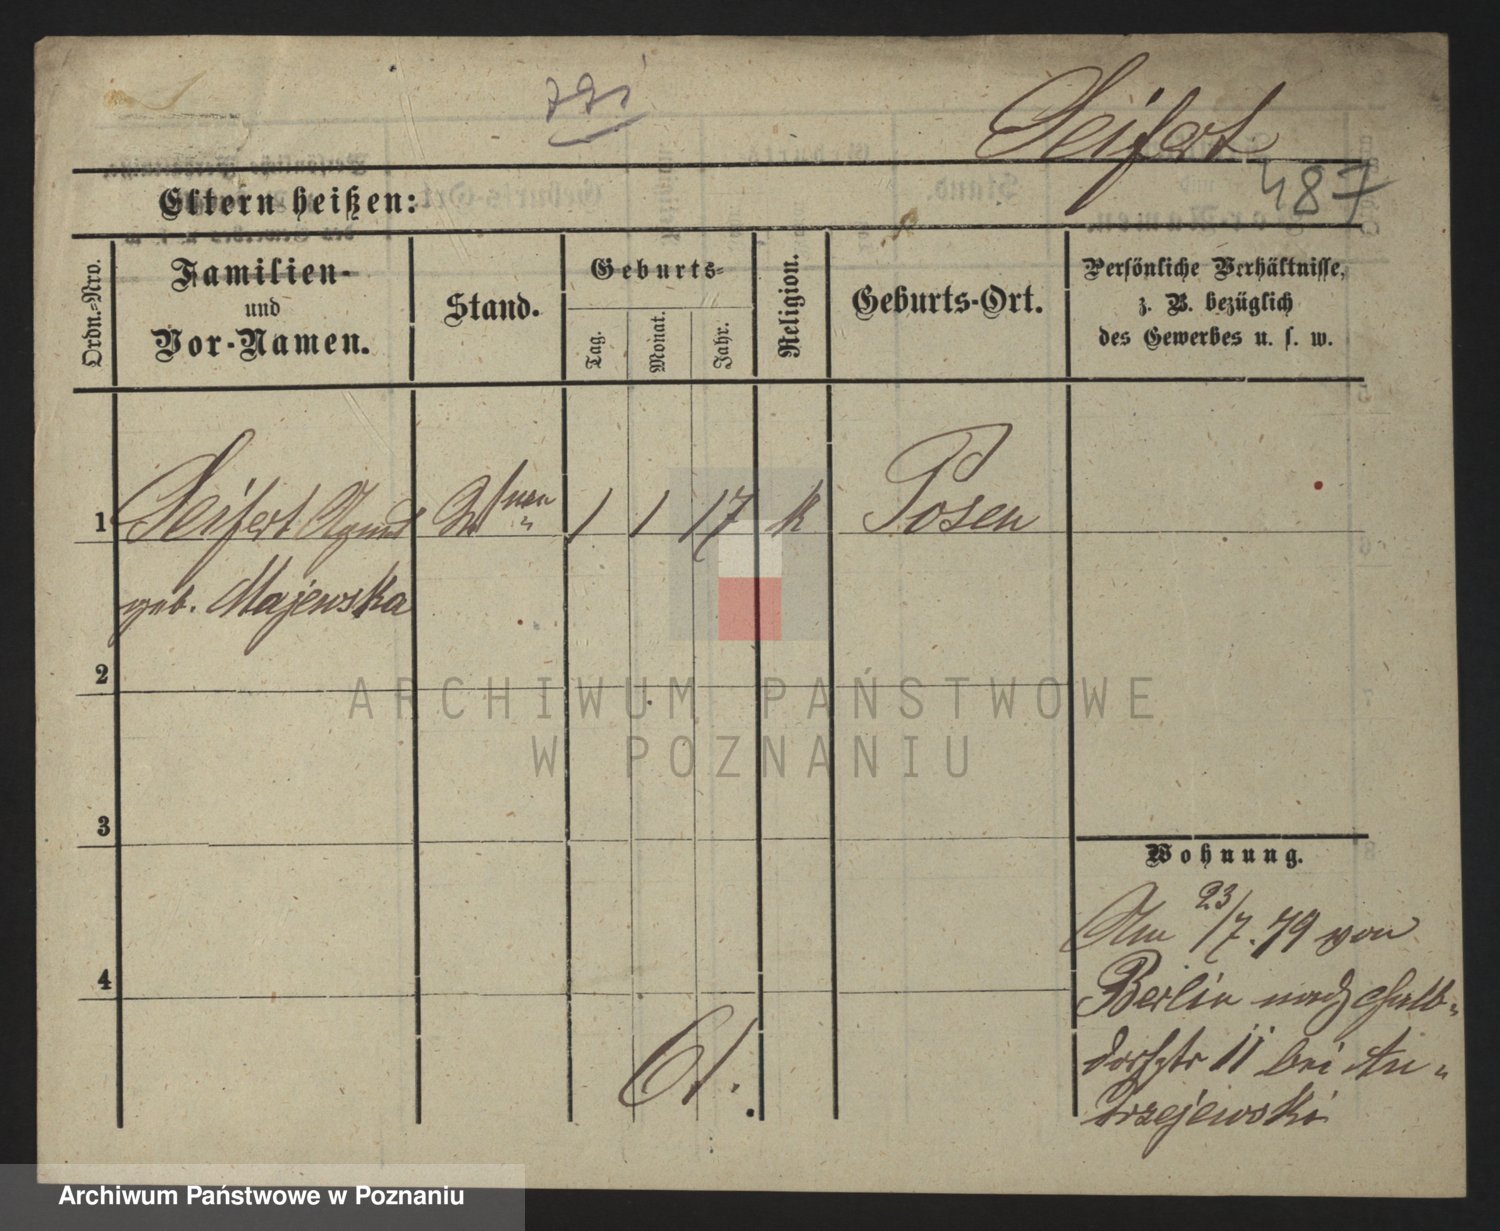 Seifert
487
Eltern heißen:
Ordn.-Nro.
Familien-
und
Vor-Namen.
Stand.
Geburts-
Tag.
Monat.
Jahr.
Religion.
Geburts-Ort.
Persönliche Verhältnisse,
z. B. bezüglich
des Gewerbes u. s. w.
1 Seifert 1 1 17 k Posen
geb. Majewska
2
3
4
Wohnung.
Am 23/7. 79 von
Berlin nach Halb-
dorfstr 11 bei An-
drzejewski
ARCHIWUM PAŃSTWOWE
W POZNANIU
Archiwum Państwowe w Poznaniu